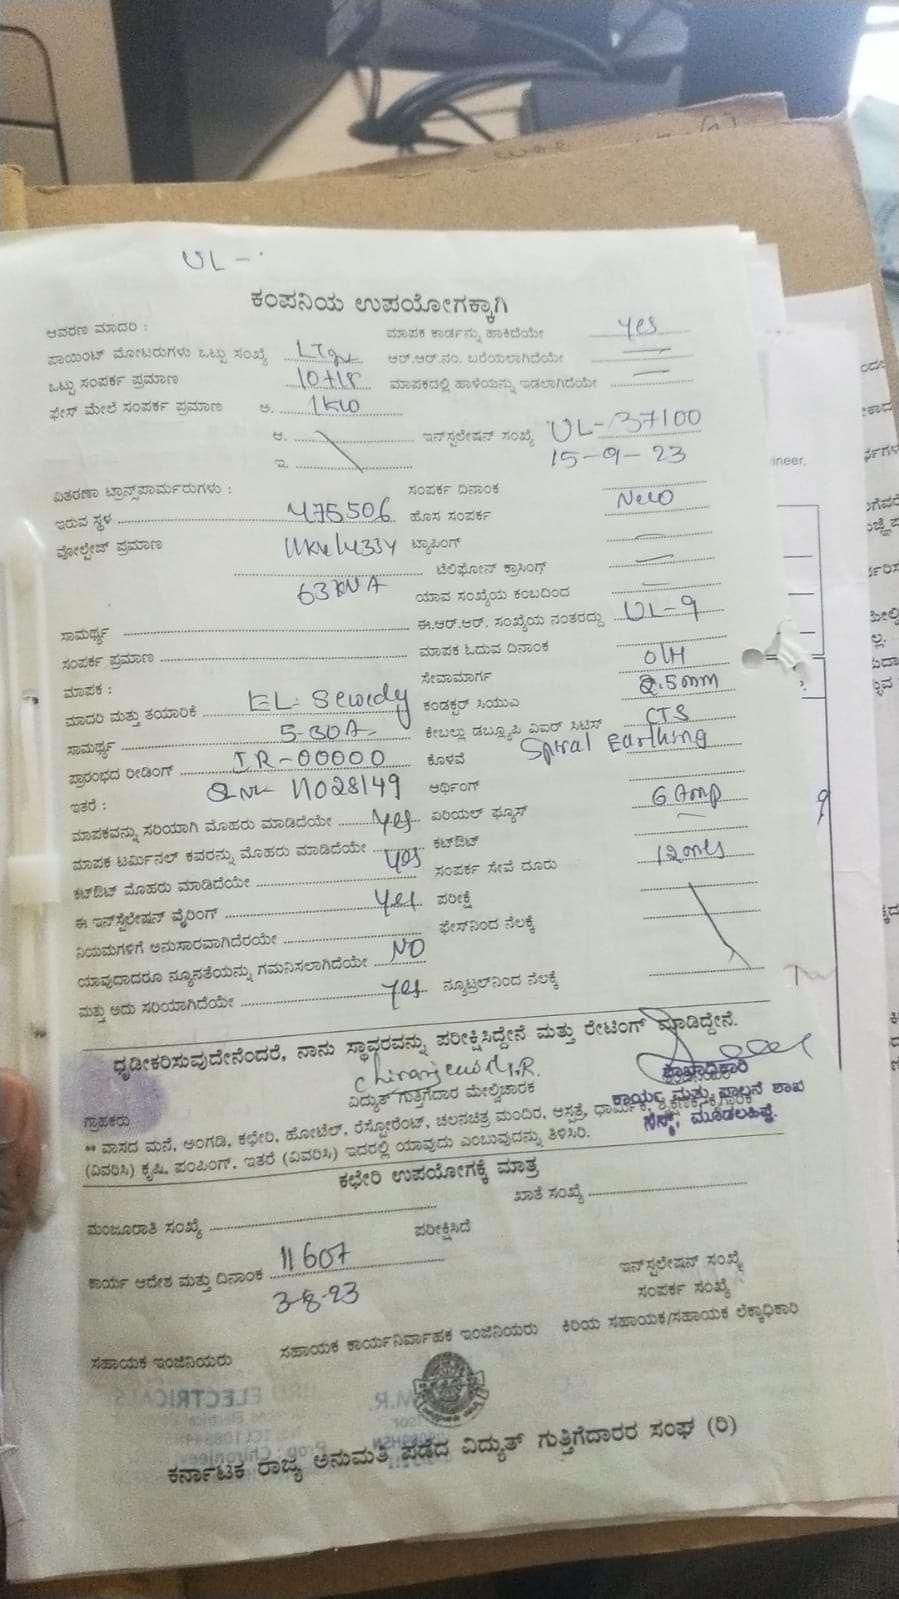 UL -
ಕಂಪನಿಯ ಉಪಯೋಗಕ್ಕಾಗಿ
ಆವರಣ ಮಾದರಿ : ಮಾಪಕ ಕಾರ್ಡನ್ನು ಹಾಕಿದೆಯೇ yes
ಪಾಯಿಂಟ್ ಮೋಟರುಗಳು ಒಟ್ಟು ಸಂಖ್ಯೆ ಆರ್.ಆರ್.ನಂ. ಬರೆಯಲಾಗಿದೆಯೇ
ಒಟ್ಟು ಸಂಪರ್ಕ ಪ್ರಮಾಣ ಮಾಪಕದಲ್ಲಿ ಹಾಳೆಯನ್ನು ಇಡಲಾಗಿದೆಯೇ
ಫೇಸ್ ಮೇಲೆ ಸಂಪರ್ಕ ಪ್ರಮಾಣ ಅ. 1kw
ಆ. ಇನ್‌ಸ್ಟಲೇಷನ್ ಸಂಖ್ಯೆ UL-37100
ಇ. 15-9-23
ವಿತರಣಾ ಟ್ರಾನ್ಸ್‌ಪಾರ್ಮರುಗಳು : ಸಂಪರ್ಕ ದಿನಾಂಕ
ಇರುವ ಸ್ಥಳ 475506 ಹೊಸ ಸಂಪರ್ಕ New
ವೋಲ್ಟೇಜ್ ಪ್ರಮಾಣ 11kv/433v ಟ್ಯಾಪಿಂಗ್
ಟೆಲಿಫೋನ್ ಕ್ರಾಸಿಂಗ್
63 KVA ಯಾವ ಸಂಖ್ಯೆಯ ಕಂಬದಿಂದ
ಸಾಮರ್ಥ್ಯ ಈ.ಆರ್.ಆರ್. ಸಂಖ್ಯೆಯ ನಂತರದ್ದು UL-9
ಸಂಪರ್ಕ ಪ್ರಮಾಣ ಮಾಪಕ ಓದುವ ದಿನಾಂಕ
ಮಾಪಕ : ಸೇವಾಮಾರ್ಗ O/H
ಮಾದರಿ ಮತ್ತು ತಯಾರಿಕೆ EL- ಕಂಡಕ್ಟರ್ ಸಿಯುಎ 2.5mm
ಸಾಮರ್ಥ್ಯ 5-30A- ಕೇಬಲ್ಲು ಡಬ್ಲ್ಯೂಪಿ ವಿಐರ್ ಸಿಟಿಸ್ CTS
ಪ್ರಾರಂಭದ ರೀಡಿಂಗ್ IR-00000 ಕೊಳವೆ Spiral Earthing
ಇತರೆ : 11028149 ಆರ್ಥಿಂಗ್
ಮಾಪಕವನ್ನು ಸರಿಯಾಗಿ ಮೊಹರು ಮಾಡಿದೆಯೇ yes ಏರಿಯಲ್ ಫ್ಯೂಸ್ 6 Amp
ಮಾಪಕ ಟರ್ಮಿನಲ್ ಕವರನ್ನು ಮೊಹರು ಮಾಡಿದೆಯೇ yes ಕಟ್‌ಔಟ್
ಕಟ್‌ಔಟ್ ಮೊಹರು ಮಾಡಿದೆಯೇ ಸಂಪರ್ಕ ಸೇವೆ ದೂರು 12
ಈ ಇನ್‌ಸ್ಟೆಲೇಷನ್ ವೈರಿಂಗ್ yes ಪರೀಕ್ಷೆ
ನಿಯಮಗಳಿಗೆ ಅನುಸಾರವಾಗಿದೆರಯೇ ಫೇಸ್‌ನಿಂದ ನೆಲಕ್ಕೆ
ಯಾವುದಾದರೂ ನ್ಯೂನತೆಯನ್ನು ಗಮನಿಸಲಾಗಿದೆಯೇ NO
ಮತ್ತು ಅದು ಸರಿಯಾಗಿದೆಯೇ yes ನ್ಯೂಟ್ರಲ್‌ನಿಂದ ನೆಲಕ್ಕೆ
ಧೃಡೀಕರಿಸುವುದೇನೆಂದರೆ, ನಾನು ಸ್ಥಾವರವನ್ನು ಪರೀಕ್ಷಿಸಿದ್ದೇನೆ ಮತ್ತು ರೇಟಿಂಗ್ ಮಾಡಿದ್ದೇನೆ.
ಶಾಖಾಧಿಕಾರಿ
ಗ್ರಾಹಕರು ವಿದ್ಯುತ್ ಗುತ್ತಿಗೆದಾರ ಮೇಲ್ವಿಚಾರಕ ಕಾರ್ಯ ಮತ್ತು ಪಾಲನೆ ಶಾಖೆ
** ವಾಸದ ಮನೆ, ಅಂಗಡಿ, ಕಛೇರಿ, ಹೋಟೆಲ್, ರೆಸ್ಟೋರೆಂಟ್, ಚಲನಚಿತ್ರ ಮಂದಿರ, ಆಸ್ಪತ್ರೆ, ಧಾರ್ಮಿಕ,
(ವಿವರಿಸಿ) ಕೃಷಿ, ಪಂಪಿಂಗ್, ಇತರೆ (ವಿವರಿಸಿ) ಇದರಲ್ಲಿ ಯಾವುದು ಎಂಬುವುದನ್ನು ತಿಳಿಸಿರಿ.
ಕಛೇರಿ ಉಪಯೋಗಕ್ಕೆ ಮಾತ್ರ
ಮಂಜೂರಾತಿ ಸಂಖ್ಯೆ ಖಾತೆ ಸಂಖ್ಯೆ
ಪರೀಕ್ಷಿಸಿದೆ
ಕಾರ್ಯ ಆದೇಶ ಮತ್ತು ದಿನಾಂಕ 11607 ಇನ್‌ಸ್ಟಲೇಷನ್ ಸಂಖ್ಯೆ
3-8-23 ಸಂಪರ್ಕ ಸಂಖ್ಯೆ
ಸಹಾಯಕ ಇಂಜಿನಿಯರು ಸಹಾಯಕ ಕಾರ್ಯನಿರ್ವಾಹಕ ಇಂಜಿನಿಯರು ಕಿರಿಯ ಸಹಾಯಕ/ಸಹಾಯಕ ಲೆಕ್ಕಾಧಿಕಾರಿ
ಕರ್ನಾಟಕ ರಾಜ್ಯ ಅನುಮತಿ ಪಡೆದ ವಿದ್ಯುತ್ ಗುತ್ತಿಗೆದಾರರ ಸಂಘ (ರಿ)